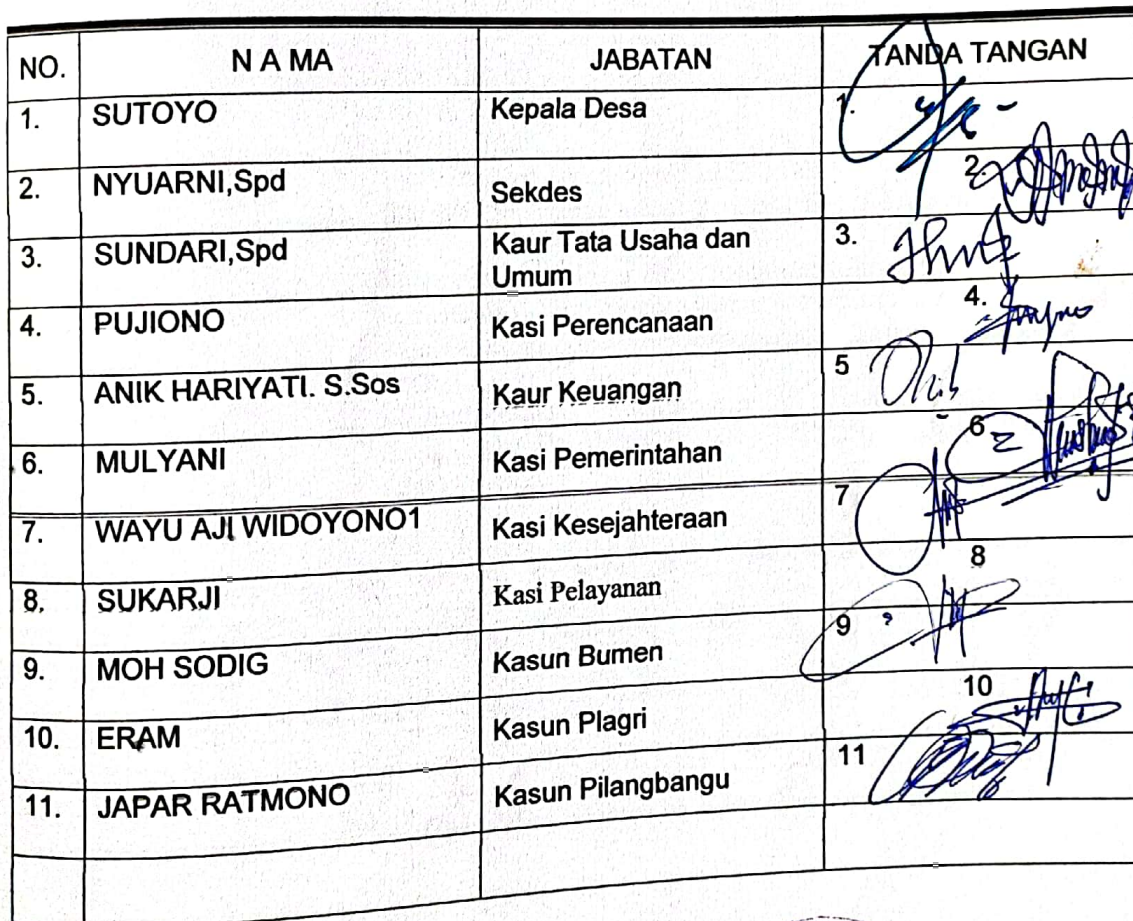 NO. N A MA JABATAN TANDA TANGAN
1. SUTOYO Kepala Desa 1.
2. NYUARNI,Spd Sekdes 2.
3. SUNDARI,Spd Kaur Tata Usaha dan 3.
Umum
4. PUJIONO Kasi Perencanaan 4.
5. ANIK HARIYATI. S.Sos Kaur Keuangan 5
6. MULYANI Kasi Pemerintahan 6
7. WAYU AJI WIDOYONO1 Kasi Kesejahteraan 7
8. SUKARJI Kasi Pelayanan 8
9. MOH SODIG Kasun Bumen 9
10. ERAM Kasun Plagri 10
11. JAPAR RATMONO Kasun Pilangbangu 11